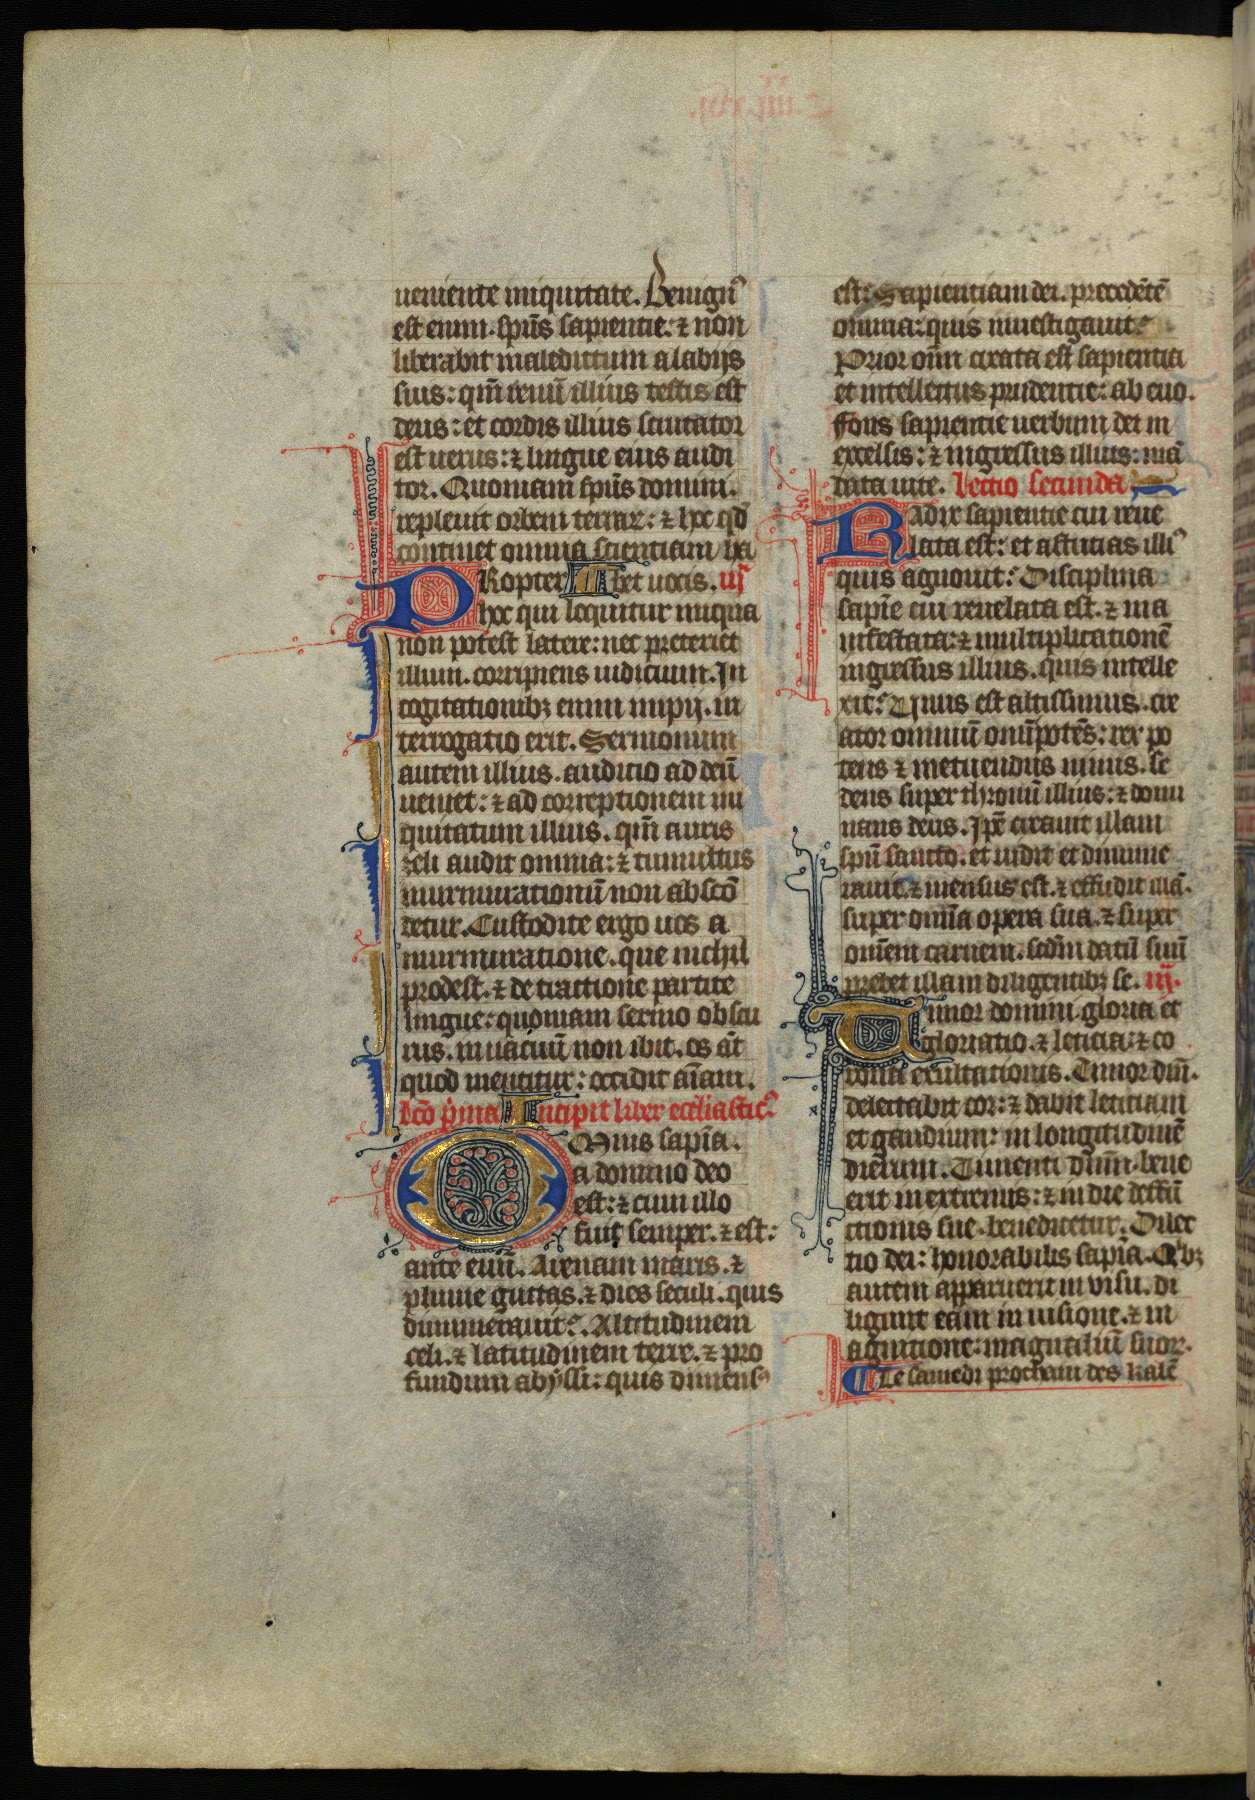 ueniente iniquitate. Benignꝰ
est enim. sp̄us sapientie: ⁊ non
liberabit maledictum a labijs
suis: qm̄ renū illius testis est
deus: et cordis illius scrutator
est uerus: ⁊ lingue eius audi
tor. Quoniam sp̄us domini.
repleuit orbem terrarꝝ: ⁊ hoc qđ
continet omnia scientiam ha
Propter bet uocis. iij
hoc qui loquitur iniqua
non potest latere: nec preteriet
illum. corripiens iudicium. In
cogitationibꝫ enim impij. in
terrogatio erit. Sermonum
autem illius. auditio ad deū
ueniet: ⁊ ad correptionem ini
quitatum illius. qm̄ auris
zeli audit omnia: ⁊ tumultus
murmurationū non abscō
detur. Custodite ergo uos a
murmuratione. que nichil
prodest. ⁊ de tractione parcite
lingue: quoniam sermo obscu
rus. in uacuū non ibit. os āt
quod mentitur: occidit aīam.
lc̄o p̄ma Incipit liber eccl̄iasticꝰ
Omnis sapīa.
a domino deo
est: ⁊ cum illo
fuit semper. ⁊ est:
ante euū. Arenam maris. ⁊
pluuie guttas. ⁊ dies seculi. quis
dinumerauit? Altitudinem
celi. ⁊ latitudinem terre. ⁊ pro
fundum abyssi: quis dimensꝰ
est? Sapientiam dei. precedētē
omnia: quis inuestigauit?
Prior om̄i creata est sapientia
et intellectus prudentie: ab euo.
ffons sapientie uerbum dei in
excelsis: ⁊ ingressus illius: mā
data uite. Lectio secunda
Radix sapientie cui reue
lata est: et astutias illiꝰ
quis agnouit? Disciplina
sapīe cui reuelata est. ⁊ ma
infestata: ⁊ multiplicationē
ingressus illius. quis intelle
xit? Unus est altissimus. cre
ator omniū omīpotēs: rex po
tens ⁊ metuendus nimis. se
dens super thronū illius: ⁊ domi
nans deus. Ip̄e creauit illam
sp̄u sancto. et uidit et dinume
rauit. ⁊ mensus est. ⁊ effudit illā.
super om̄ia opera sua. ⁊ super
om̄em carnem. scđm datū suū
prebet illam diligentibꝫ se. iij.
Timor domini. gloria et
gloriatio. ⁊ leticia: ⁊ co
rona exultationis. Timor dn̄i.
delectabit cor: ⁊ dabit letitiam
et gaudium: in longitudinē
dierum. Timenti dn̄m. bene
erit in extremis: ⁊ in die deffū
ctionis sue. benedicetur. Dilec
tio dei: honorabilis sapīa. Qⁱbꝫ
autem apparuerit in visu. di
ligunt eam in uisione. ⁊ in
agnitione: magnaliū suorꝝ.
Le samedi prochain des kalē